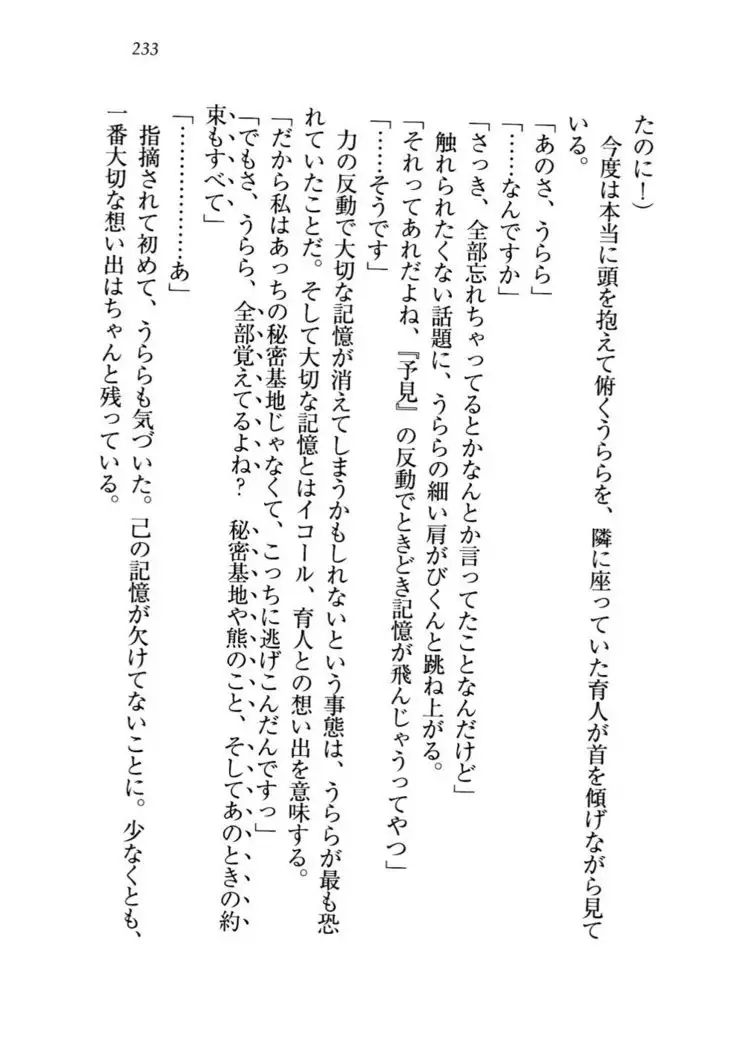 233
たのに!)
　今度は本当に頭を抱えて俯くうららを、隣に座っていた育人が首を傾げながら見て
いる。
「あのさ、うらら」
「……なんですか」
「さっき、全部忘れちゃってるとかなんとか言ってたことなんだけど」
　触れられたくない話題に、うららの細い肩がびくんと跳ね上がる。
「それってあれだよね、『予見』の反動でときどき記憶が飛んじゃうってやつ」
「……そうです」
　力の反動で大切な記憶が消えてしまうかもしれないという事態は、うららが最も恐
れていたことだ。そして大切な記憶とはイコール、育人との想い出を意味する。
「だから私はあっちの秘密基地じゃなくて、こっちに逃げこんだんですっ」
「でもさ、うらら、全部覚えてるよね?　秘密基地や熊のこと、そしてあのときの約
束もすべて」
「………………あ」
　指摘されて初めて、うららも気づいた。己の記憶が欠けてないことに。少なくとも、
一番大切な想い出はちゃんと残っている。